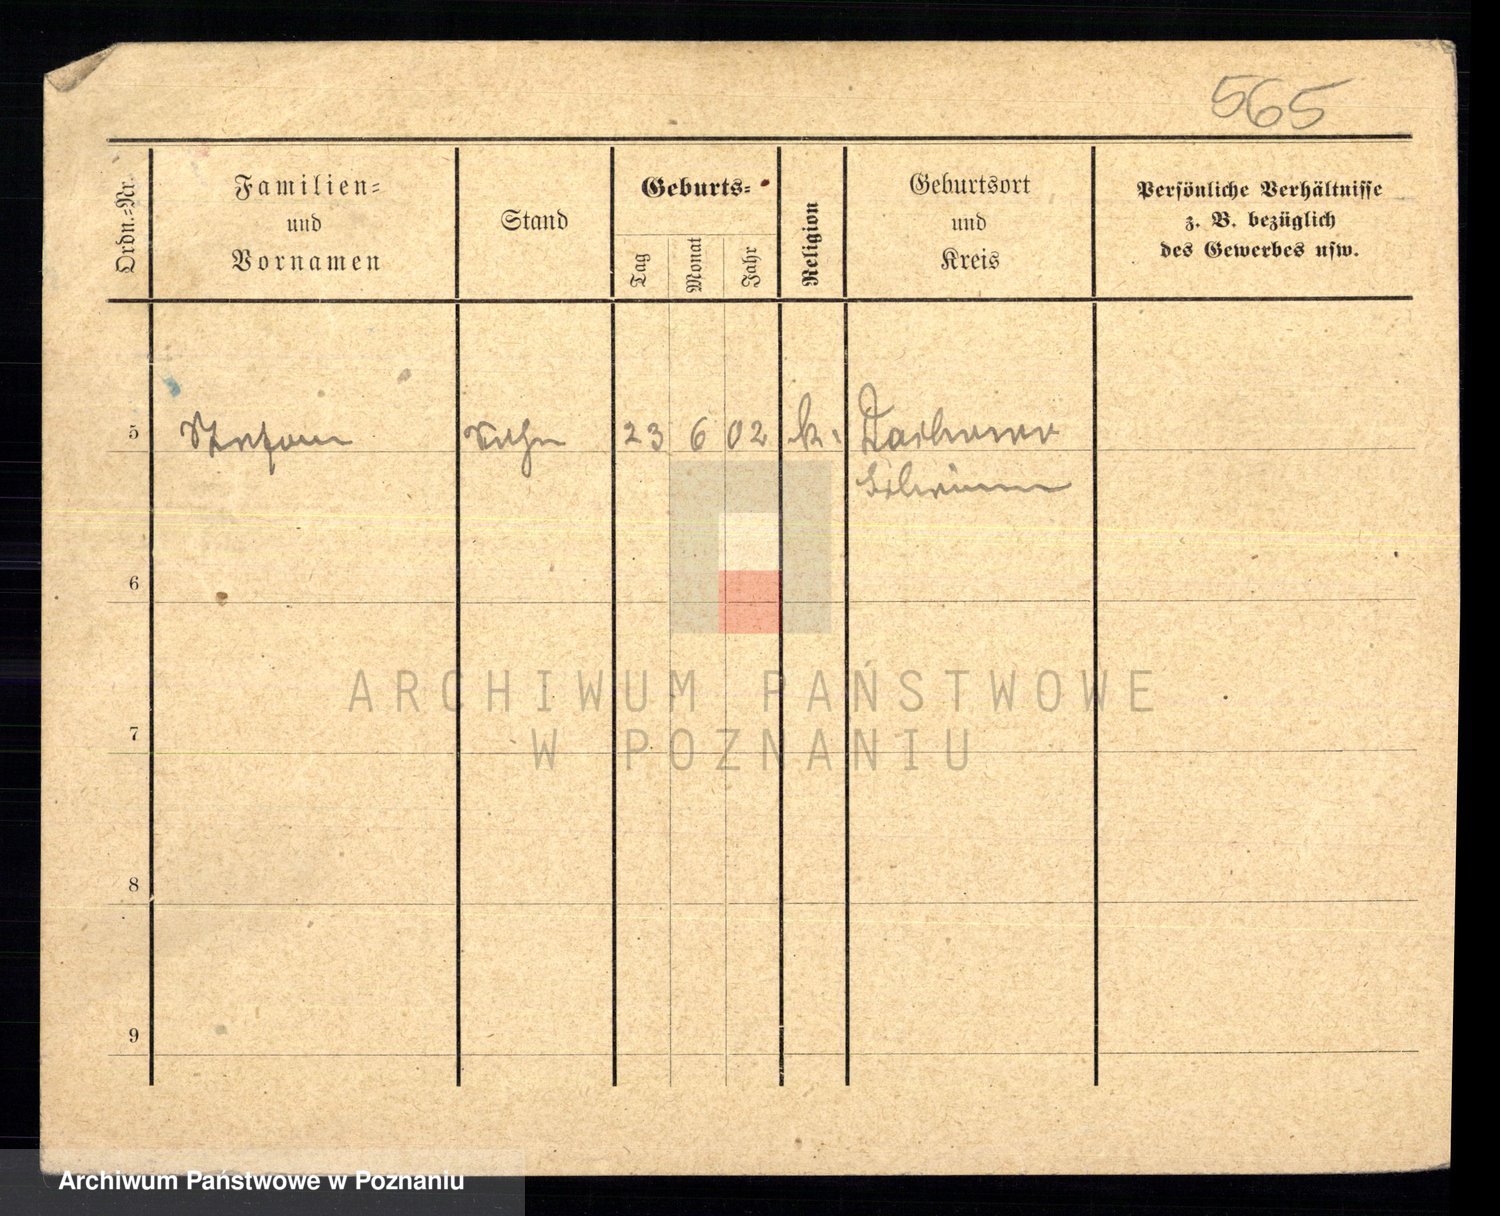 565
Ordn.-Nr.
Familien-
und
Vornamen
Stand
Geburts-
Tag
Monat
Jahr
Religion
Geburtsort
und
Kreis
Persönliche Verhältnisse
z. B. bezüglich
des Gewerbes usw.
5 Stefan Sohn 23 6 02 k.
6
7
8
9
ARCHIWUM PAŃSTWOWE
W POZNANIU
Archiwum Państwowe w Poznaniu